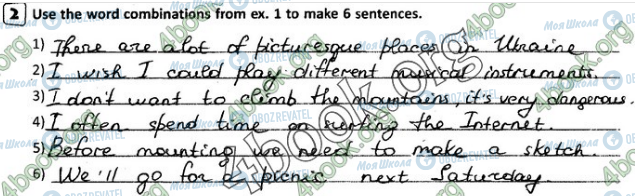 2 Use the word combinations from ex. 1 to make 6 sentences.
1) There are alot of picturesque places in Ukraine
2) I wish I could play different musical instruments.
3) I don't want to climb the mountains, it's very dangerous.
4) I often spend time on surfing the Internet.
5) Before mounting we need to make a sketch.
6) We'll go for a picnic next Saturday.